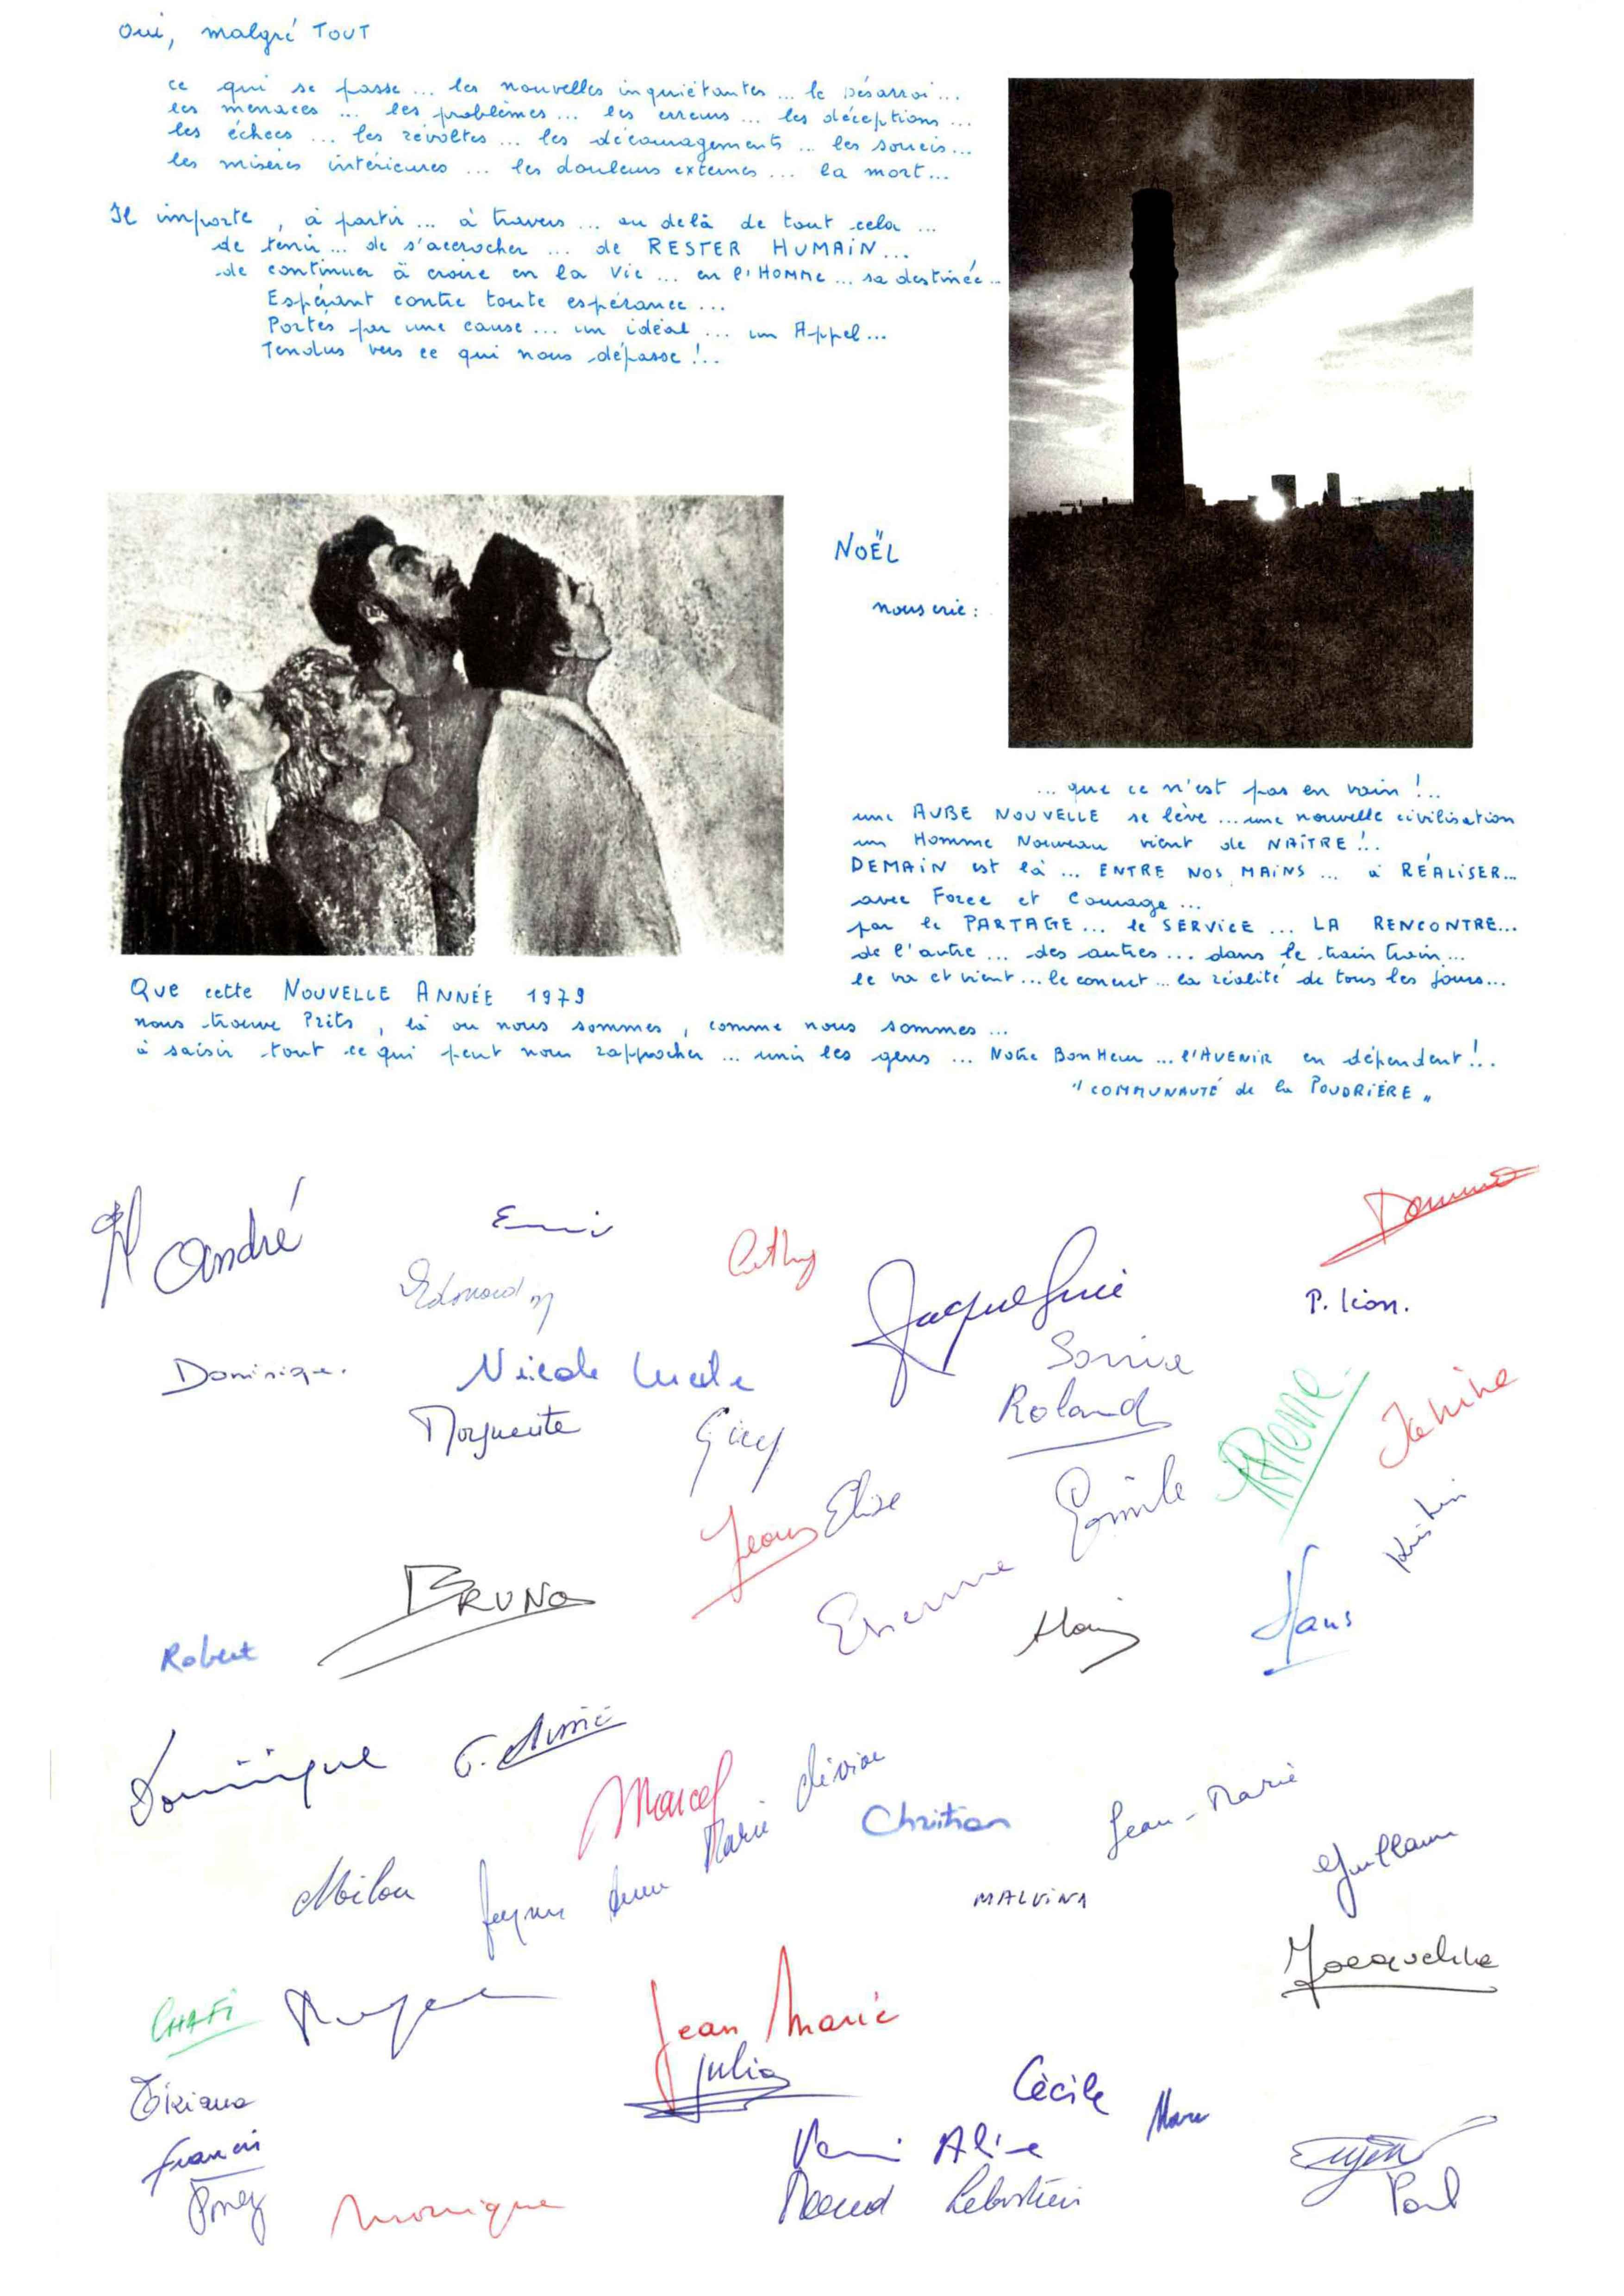 Oui, malgré TOUT
ce qui se passe... les nouvelles inquiétantes... le Désarroi...
les menaces ... les problèmes... les erreurs... les déceptions...
les échecs ... les révoltes ... les découragements ... les soucis...
les misères intérieures ... les douleurs externes ... la mort...
Il importe, à partir ... à travers ... au delà de tout cela ...
de tenir ... de s'accrocher ... de RESTER HUMAIN...
de continuer à croire en la Vie ... en l'HOMME ... sa destinée...
Espérant contre toute espérance ...
Portés par une cause ... un idéal ... un Appel...
Tendus vers ce qui nous dépasse !..
NOËL
nous crie :
... que ce n'est pas en vain !..
une AUBE NOUVELLE se lève ... une nouvelle civilisation
un Homme Nouveau vient de NAÎTRE !..
DEMAIN est là ... ENTRE NOS MAINS ... à RÉALISER...
avec Force et Courage ...
par le PARTAGE... le SERVICE ... LA RENCONTRE...
de l'autre ... des autres ... dans le train train...
le va et vient ... le concret ... la réalité de tous les jours...
Que cette NOUVELLE ANNÉE 1979
nous trouve Prêts, là ou nous sommes, comme nous sommes ...
à saisir tout ce qui peut nous rapprocher ... unir les gens ... Notre BonHeur ... l'AVENIR en dépendent !..
"COMMUNAUTÉ de la POUDRIÈRE"
André
Cathy
Jacqueline
P. Léon.
Dominique.
Nicole Lucile
Sonia
Roland
Marguerite
Guy
Pierre
Janine
Jean Elise
Emile
Etienne
Kristin
BRUNO
Robert
Alain
Hans
Dominique
Marcel
Marie
Christian
Jean-Marie
Guillaume
Milou
MALVINA
Jacqueline
CHAFI
Jean Marie
Julia
Cécile
Marc
Francis
Aline
Monique
Sébastien
Paul